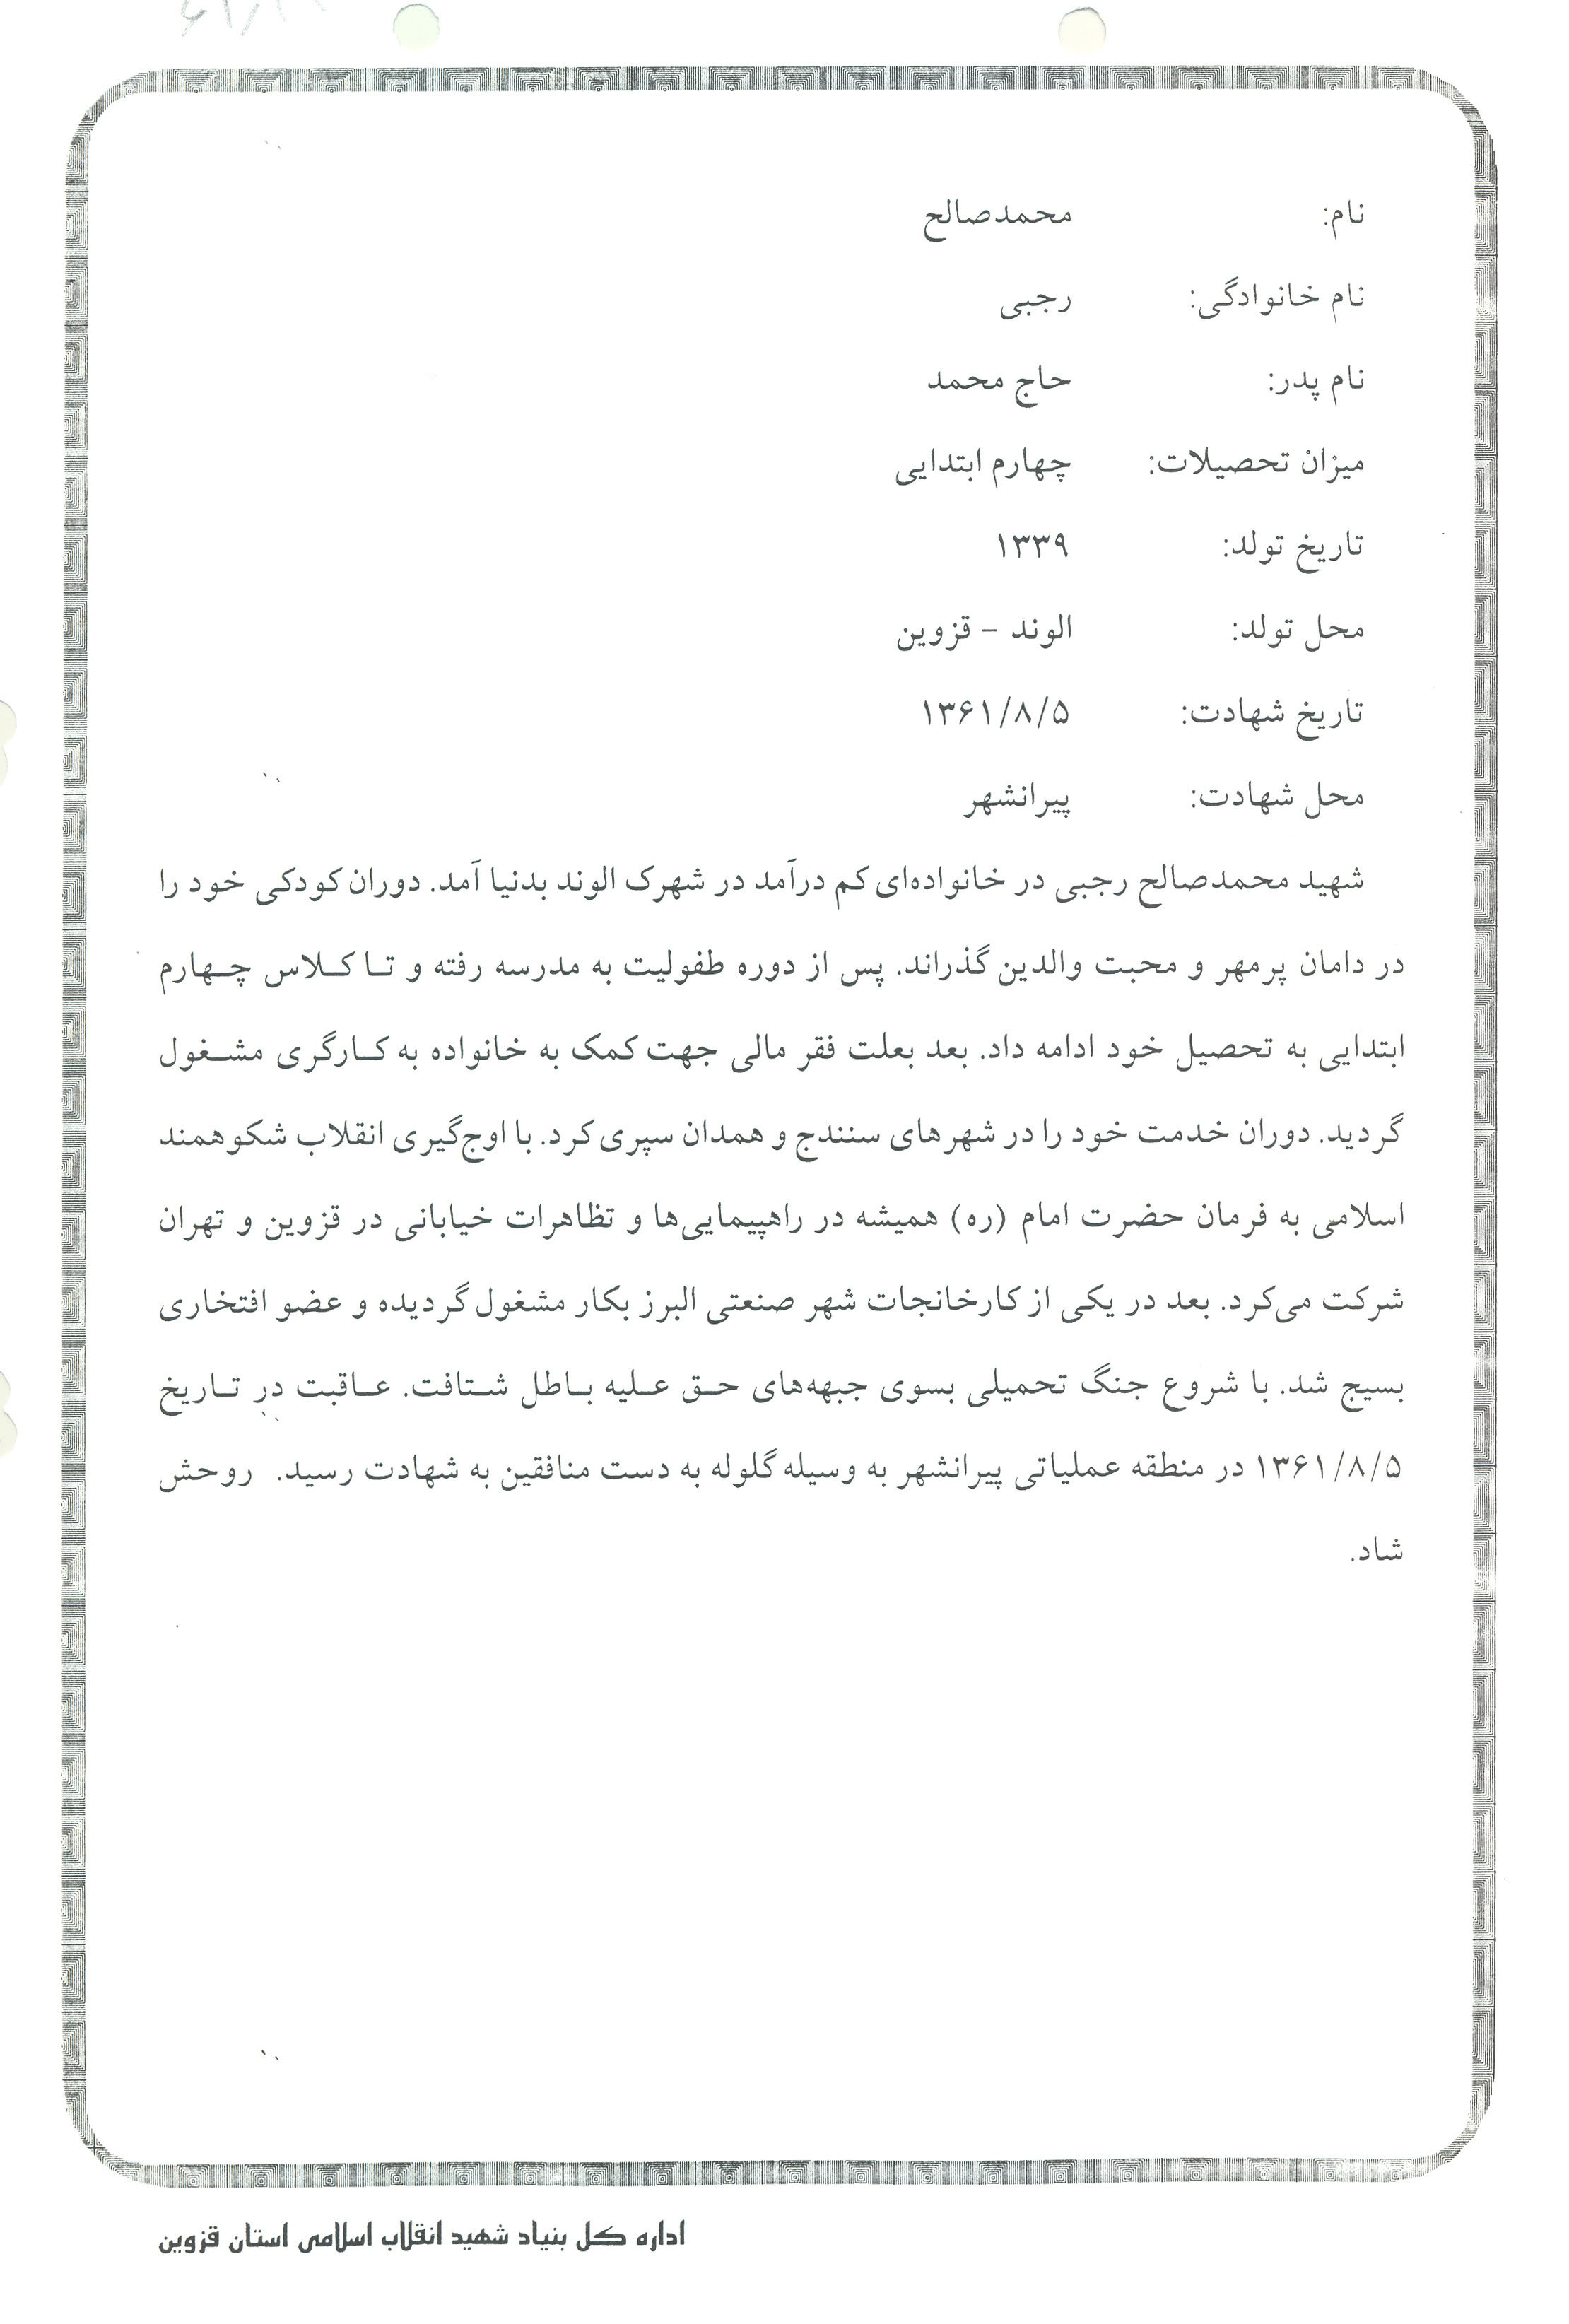 نام: محمدصالح
نام خانوادگی: رجبی
نام پدر: حاج محمد
میزان تحصیلات: چهارم ابتدایی
تاریخ تولد: ۱۳۳۹
محل تولد: الوند - قزوین
تاریخ شهادت: ۱۳۶۱/۸/۵
محل شهادت: پیرانشهر
شهید محمدصالح رجبی در خانواده‌ای کم درآمد در شهرک الوند بدنیا آمد. دوران کودکی خود را
در دامان پرمهر و محبت والدین گذراند. پس از دوره طفولیت به مدرسه رفته و تـا کـلاس چـهارم
ابتدایی به تحصیل خود ادامه داد. بعد بعلت فقر مالی جهت کمک به خانواده به کـارگری مشـغول
گردید. دوران خدمت خود را در شهرهای سنندج و همدان سپری کرد. با اوج‌گیری انقلاب شکوهمند
اسلامی به فرمان حضرت امام (ره) همیشه در راهپیمایی‌ها و تظاهرات خیابانی در قزوین و تهران
شرکت می‌کرد. بعد در یکی از کارخانجات شهر صنعتی البرز بکار مشغول گردیده و عضو افتخاری
بسیج شد. با شروع جنگ تحمیلی بسوی جبهه‌های حـق عـلیه بـاطل شـتافت. عـاقبت در تـاریخ
۱۳۶۱/۸/۵ در منطقه عملیاتی پیرانشهر به وسیله گلوله به دست منافقین به شهادت رسید. روحش
شاد.
اداره کل بنیاد شهید انقلاب اسلامی استان قزوین